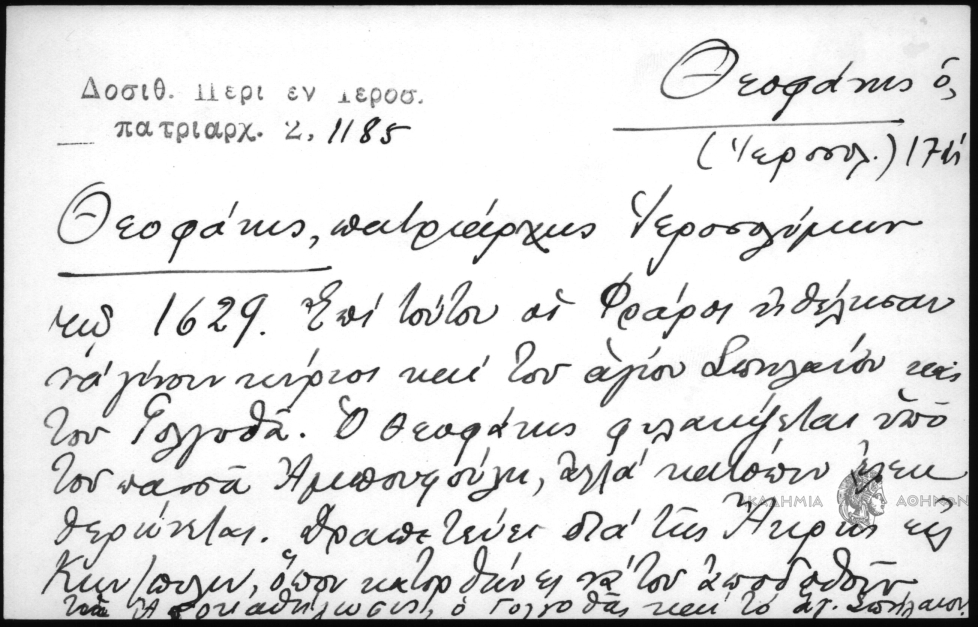 Δοσιθ. Περι εν Ιεροσ.
πατριαρχ. Σ. 1185
Θεοφάνης ὁ,
(Ἱεροσολ.)
Θεοφάνης, πατριάρχης Ἱεροσολύμων
τῷ 1629. Ἐπί τούτου οἱ Φράροι ἠθέλησαν
νά γίνουν κύριοι καί τοῦ ἁγίου Σπηλαίου καί
τοῦ Γολγοθᾶ. Ὁ Θεοφάνης φυλακίζεται ὑπό
τοῦ πασσᾶ ἀλλά κατόπιν ἐλευ
θερώνεται. Δραπετεύει διά τῆς εἰς
Κων/πολιν, ὅπου κατορθώνει νά τοῦ ἀποδοθοῦν
ὁ Γολγοθᾶς καί τό ἁγ. Σπήλαιον.
ΑΚΑΔΗΜΙΑ ΑΘΗΝΩΝ